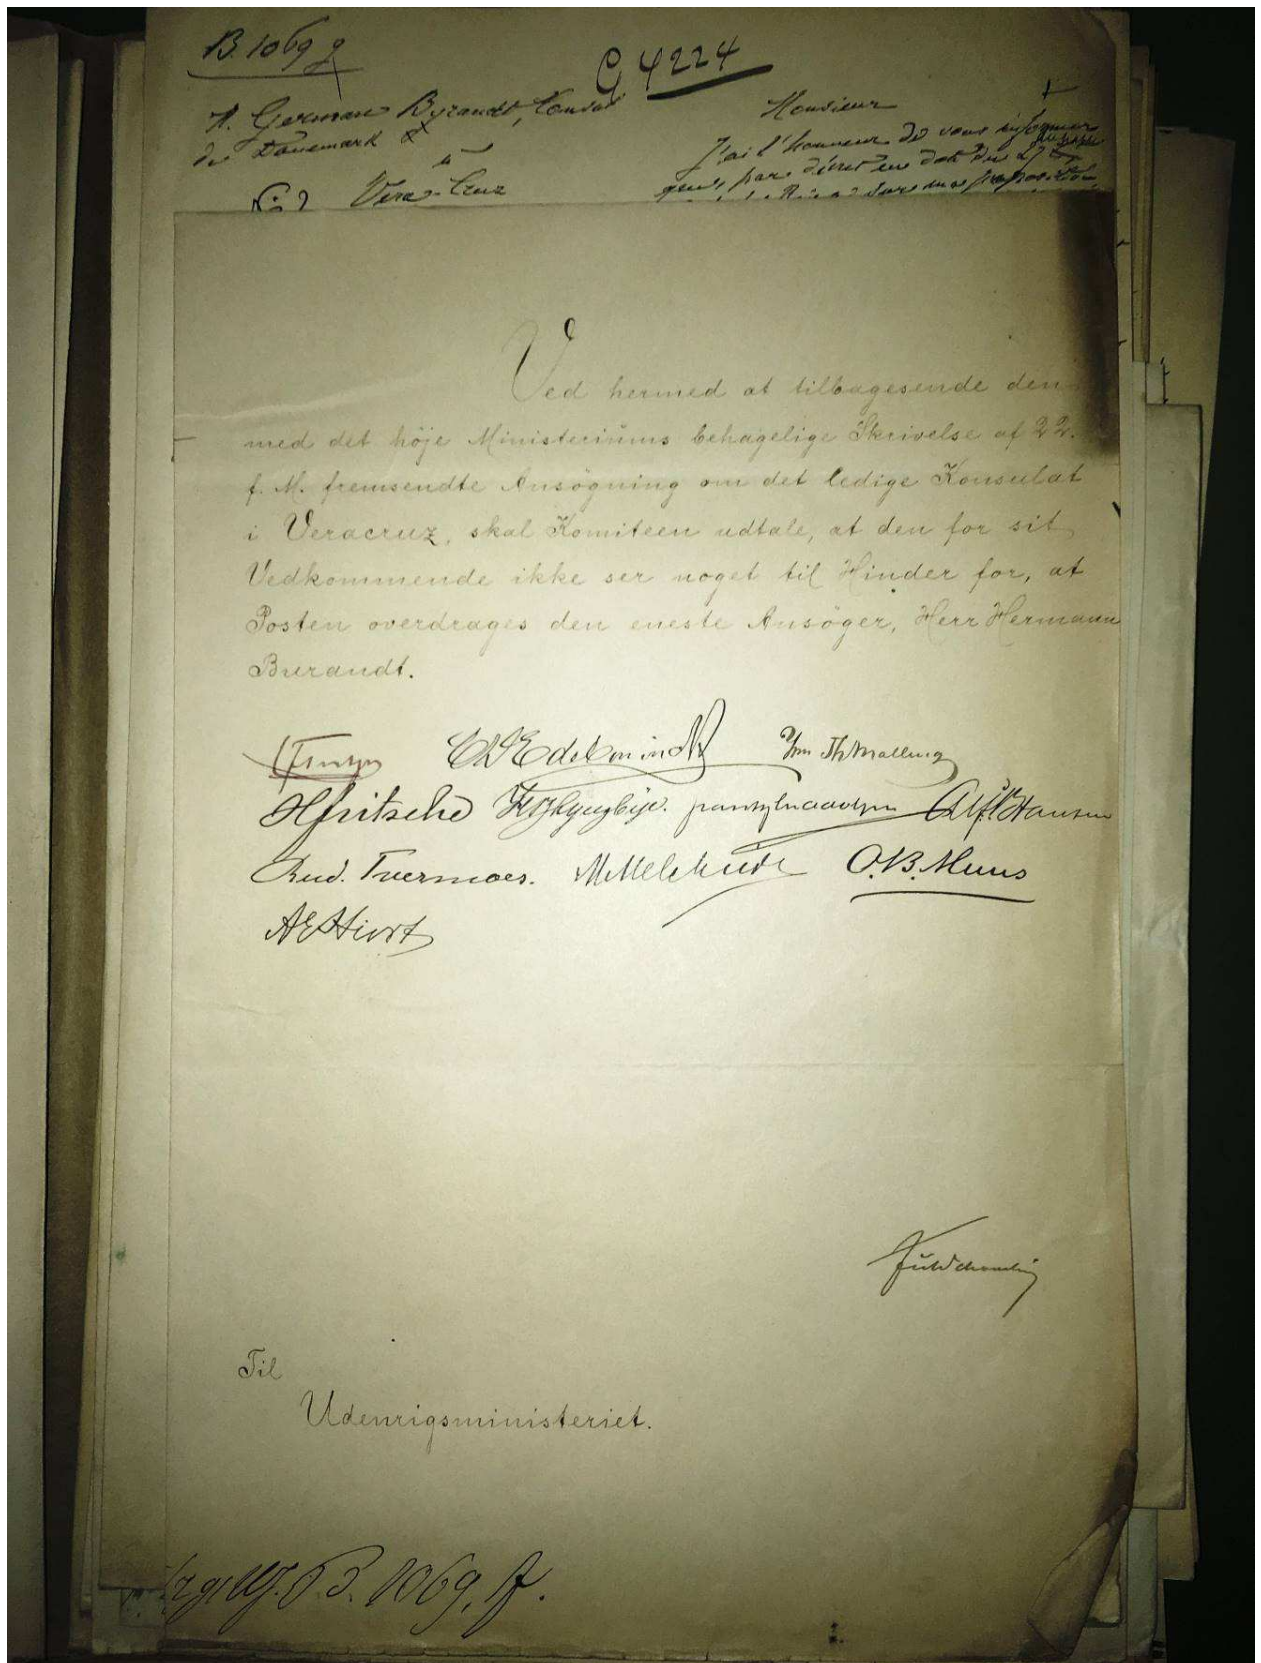 B. 1069 g
G 4224
M. German Burandt, Consul
de Danemark
à
Vera-Cruz
Monsieur
J'ai l'honneur de vous informer
que, par décret en date du 27
sur ma proposition
Ved hermed at tilbagesende den
med det höje Ministeriums behagelige Skrivelse af 22.
f. M. fremsendte Ansögning om det ledige Konsulat
i Veracruz, skal Komiteen udtale, at den for sit
Vedkommende ikke ser noget til Hinder for, at
Posten overdrages den eneste Ansöger, Herr Hermann
Burandt.
HFritsche Alf. Hansen
Rud. Tvermoes. O.B. Muus
Til
Udenrigsministeriet.
B. 1069, f.